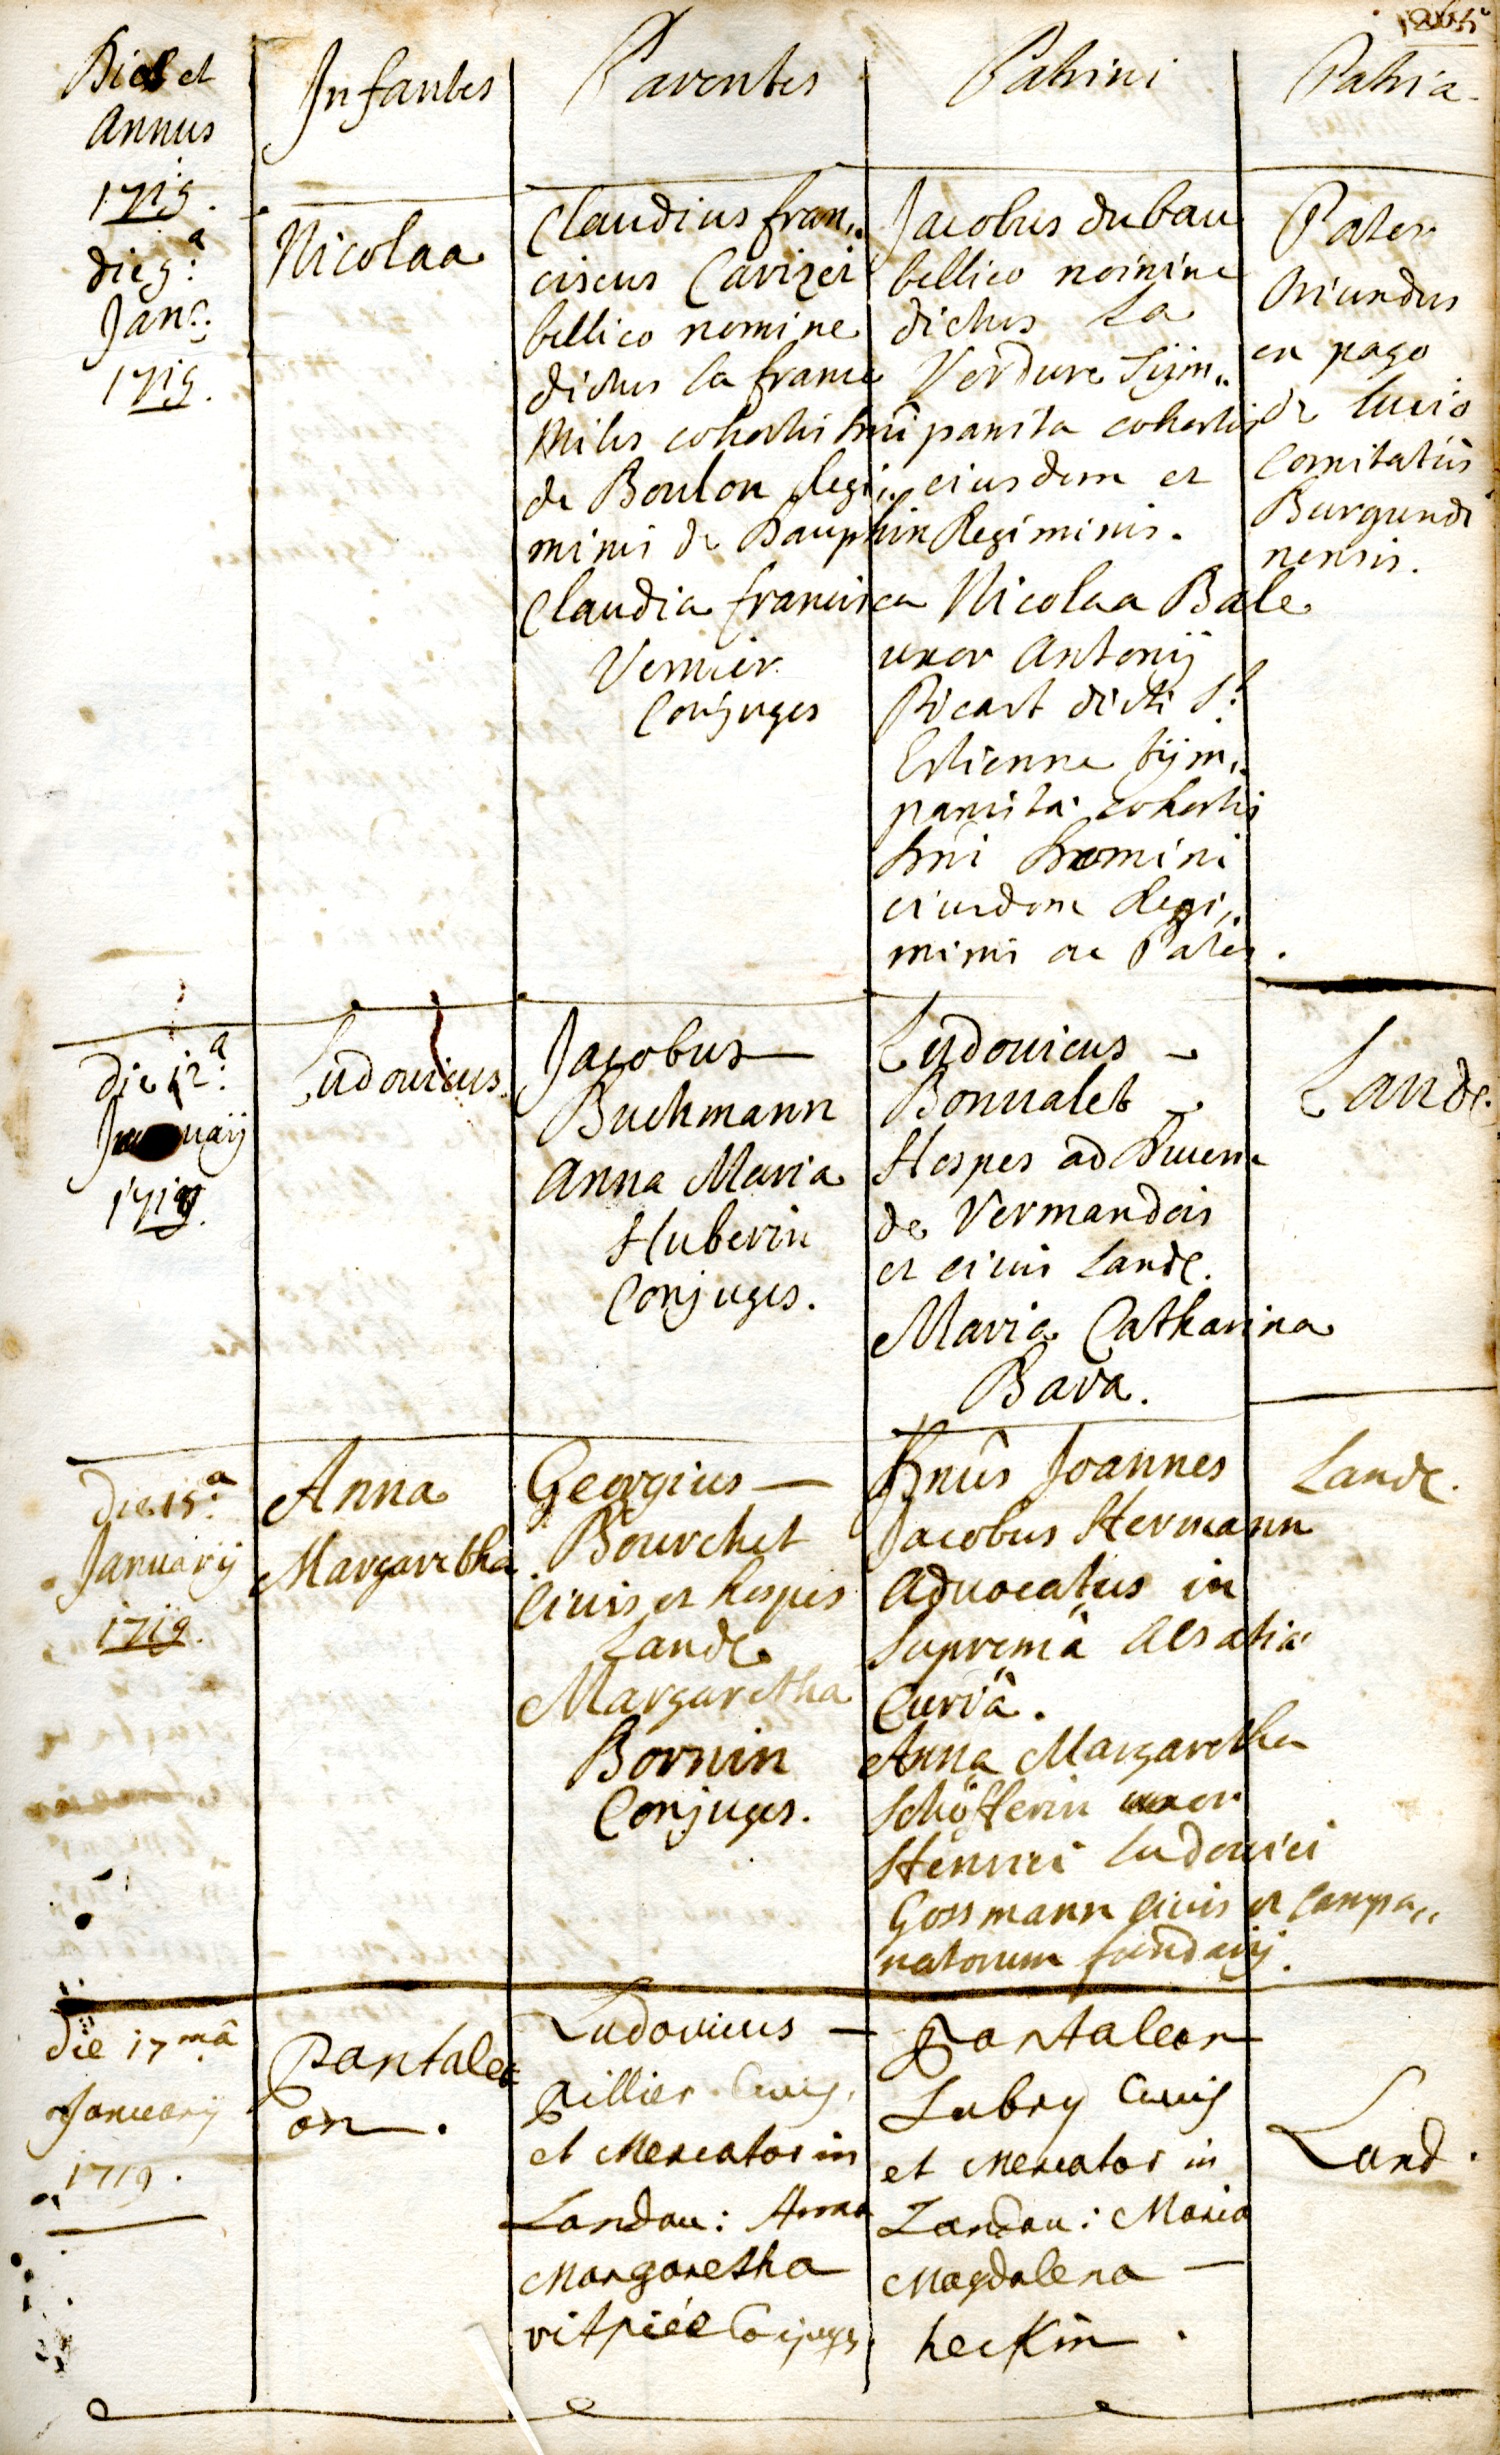 Dies et
Annus
1719.
Infantes
Parentes
Patrini
Patria.
die 9.a
Jan.
1719.
Nicolaa
Claudius fran„
ciscus Cavizer
bellico nomine
dictus la france
Miles cohortis Dni
de Boulon Regi„
minis de Dauphin
Claudia francisca
Vernier
Conjuges
Jacobus dubau
bellico nomine
dictus La
Verdure Tÿm„
panista cohortis
eiusdem et
Regiminis.
Nicolaa Bale
uxor Antonij
Ricart dicti St.
Estienne tÿm„
panista cohortis
Dni
eiusdem Regi„
minis ac Pater.
Pater
Oriundus
ex pago
de
Comitatûs
Burgundi
nensis.
die 12.a
Januarij
1719.
Ludovicus.
Jacobus —
Buchmann
Anna Maria
Huberin
Conjuges.
Ludovicus –
Bonualet –
Hospes ad
de Vermandois
et civis Landæ.
Maria Catharina
Bara.
Landæ.
Die 15.a
Januarij
1719.
Anna
Margaretha
Georgius —
Bourchet
Civis et hospes
Landæ
Margaretha
Bornin
Conjuges.
Dnûs Joannes
Jacobus Hermann
Advocatus in
Supremâ Alsatiæ
Curiâ.
Anna Margaretha
Schöfferin uxor
Henrici Ludovici
Gossmann civis et Campa„
natorum fundarij.
Landæ.
Die 17mâ
Januarij
1719.
Pantale
on.
Ludovicus —
Pillier Civis,
et Mercator in
Landau: Anna
Margaretha
vitpiée Conjuges.
Pantaleon
Lubry Civis
et Mercator in
Landau: Maria
Magdalena —
heckin.
Land.